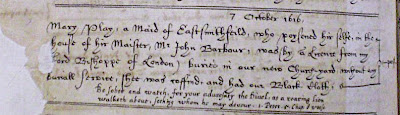 7 October 1616.
Mary Play, a Maid of Eastsmithfeild, who poysened hir selfe, in the
house of hir Maister, Mr John Barbour, was by a Licens from my
Lord Bishoppe of London, buried in our new Church-yard without any
buriall Service, shee was coffind, and had our Black Cloth,
Be sober and watch, for your adversary the Divel, as a roaring lion
walketh about, seeking whom he may devour, 1. Peter. 5. Chap.